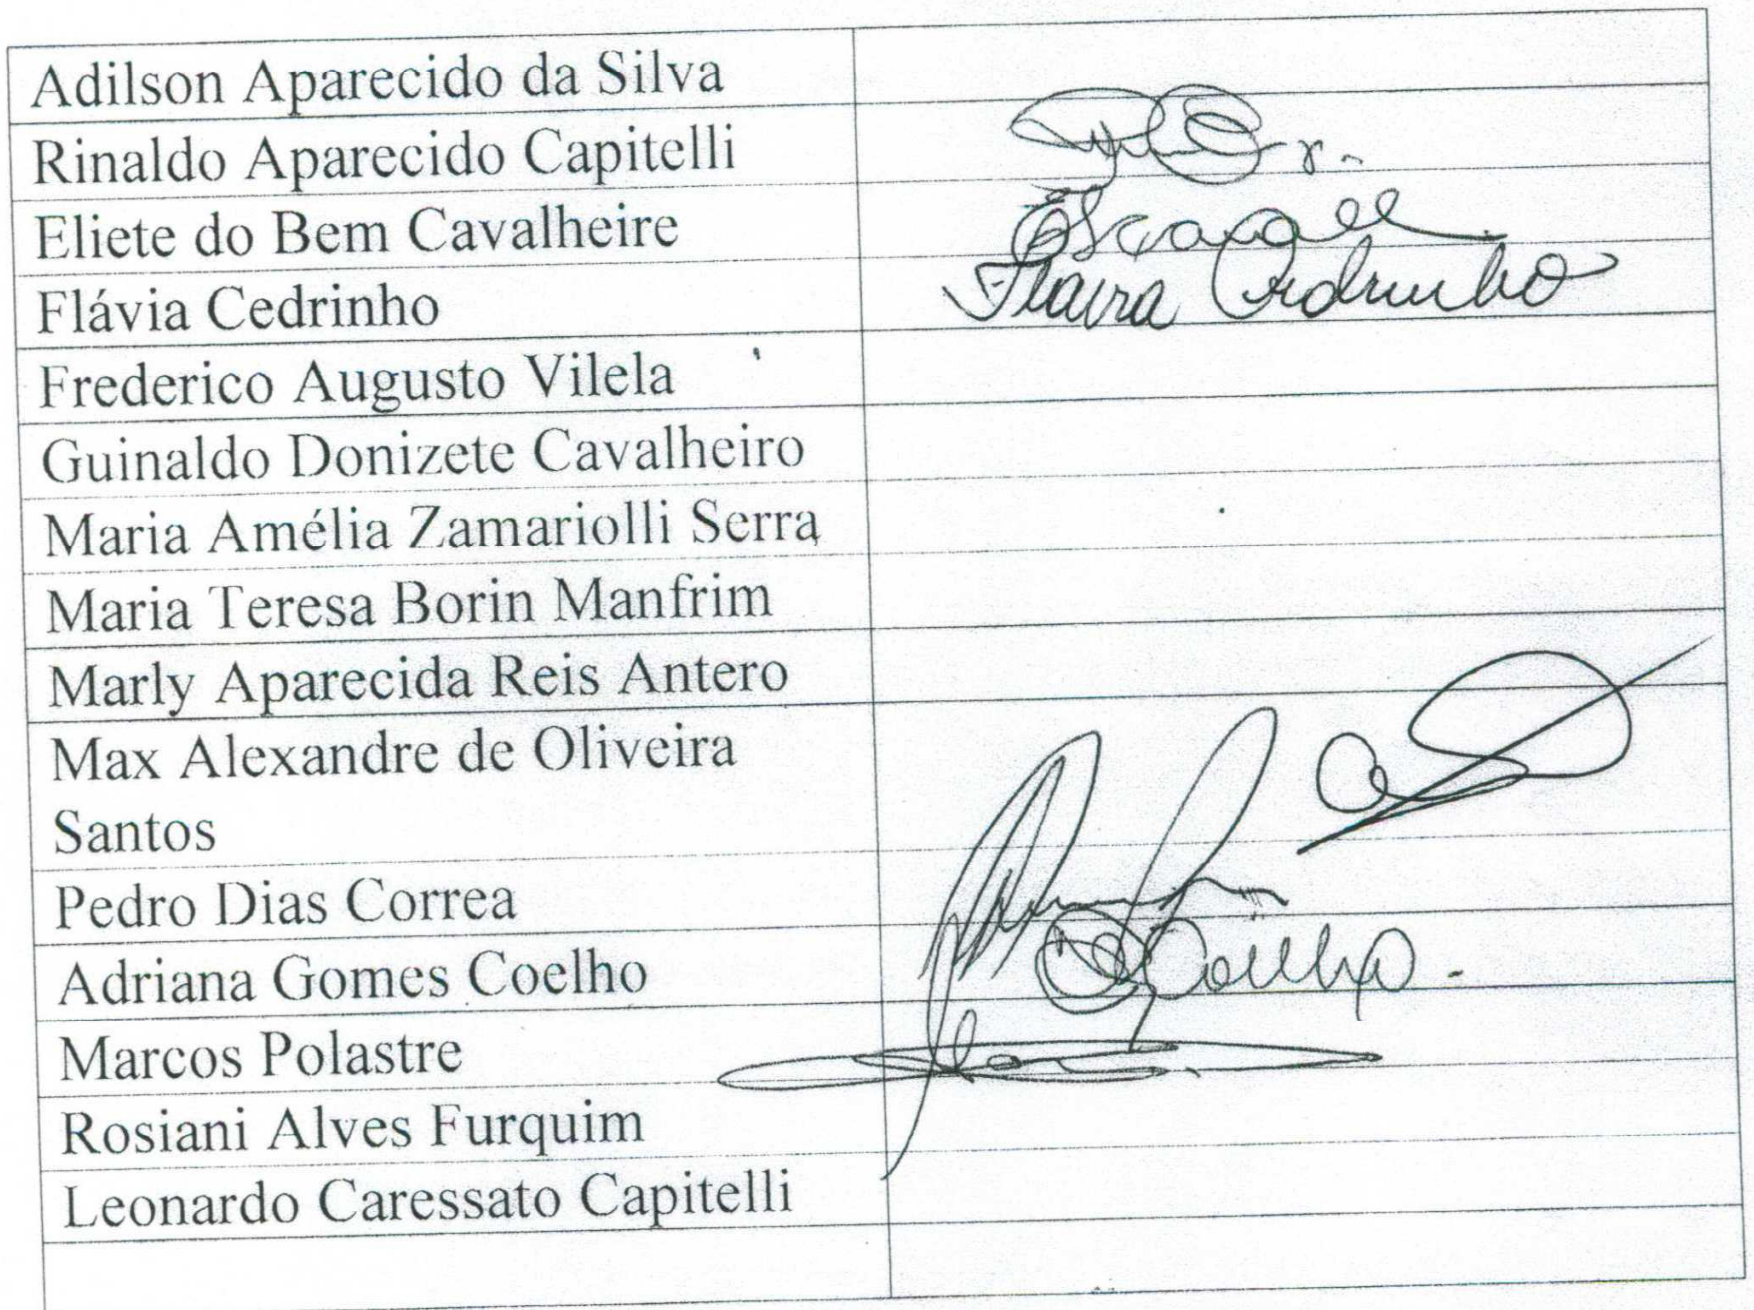 Adilson Aparecido da Silva
Rinaldo Aparecido Capitelli
Eliete do Bem Cavalheire
Flávia Cedrinho Flavia Cedrinho
Frederico Augusto Vilela
Guinaldo Donizete Cavalheiro
Maria Amélia Zamariolli Serra
Maria Teresa Borin Manfrim
Marly Aparecida Reis Antero
Max Alexandre de Oliveira
Santos
Pedro Dias Correa
Adriana Gomes Coelho Coelho
Marcos Polastre
Rosiani Alves Furquim
Leonardo Caressato Capitelli